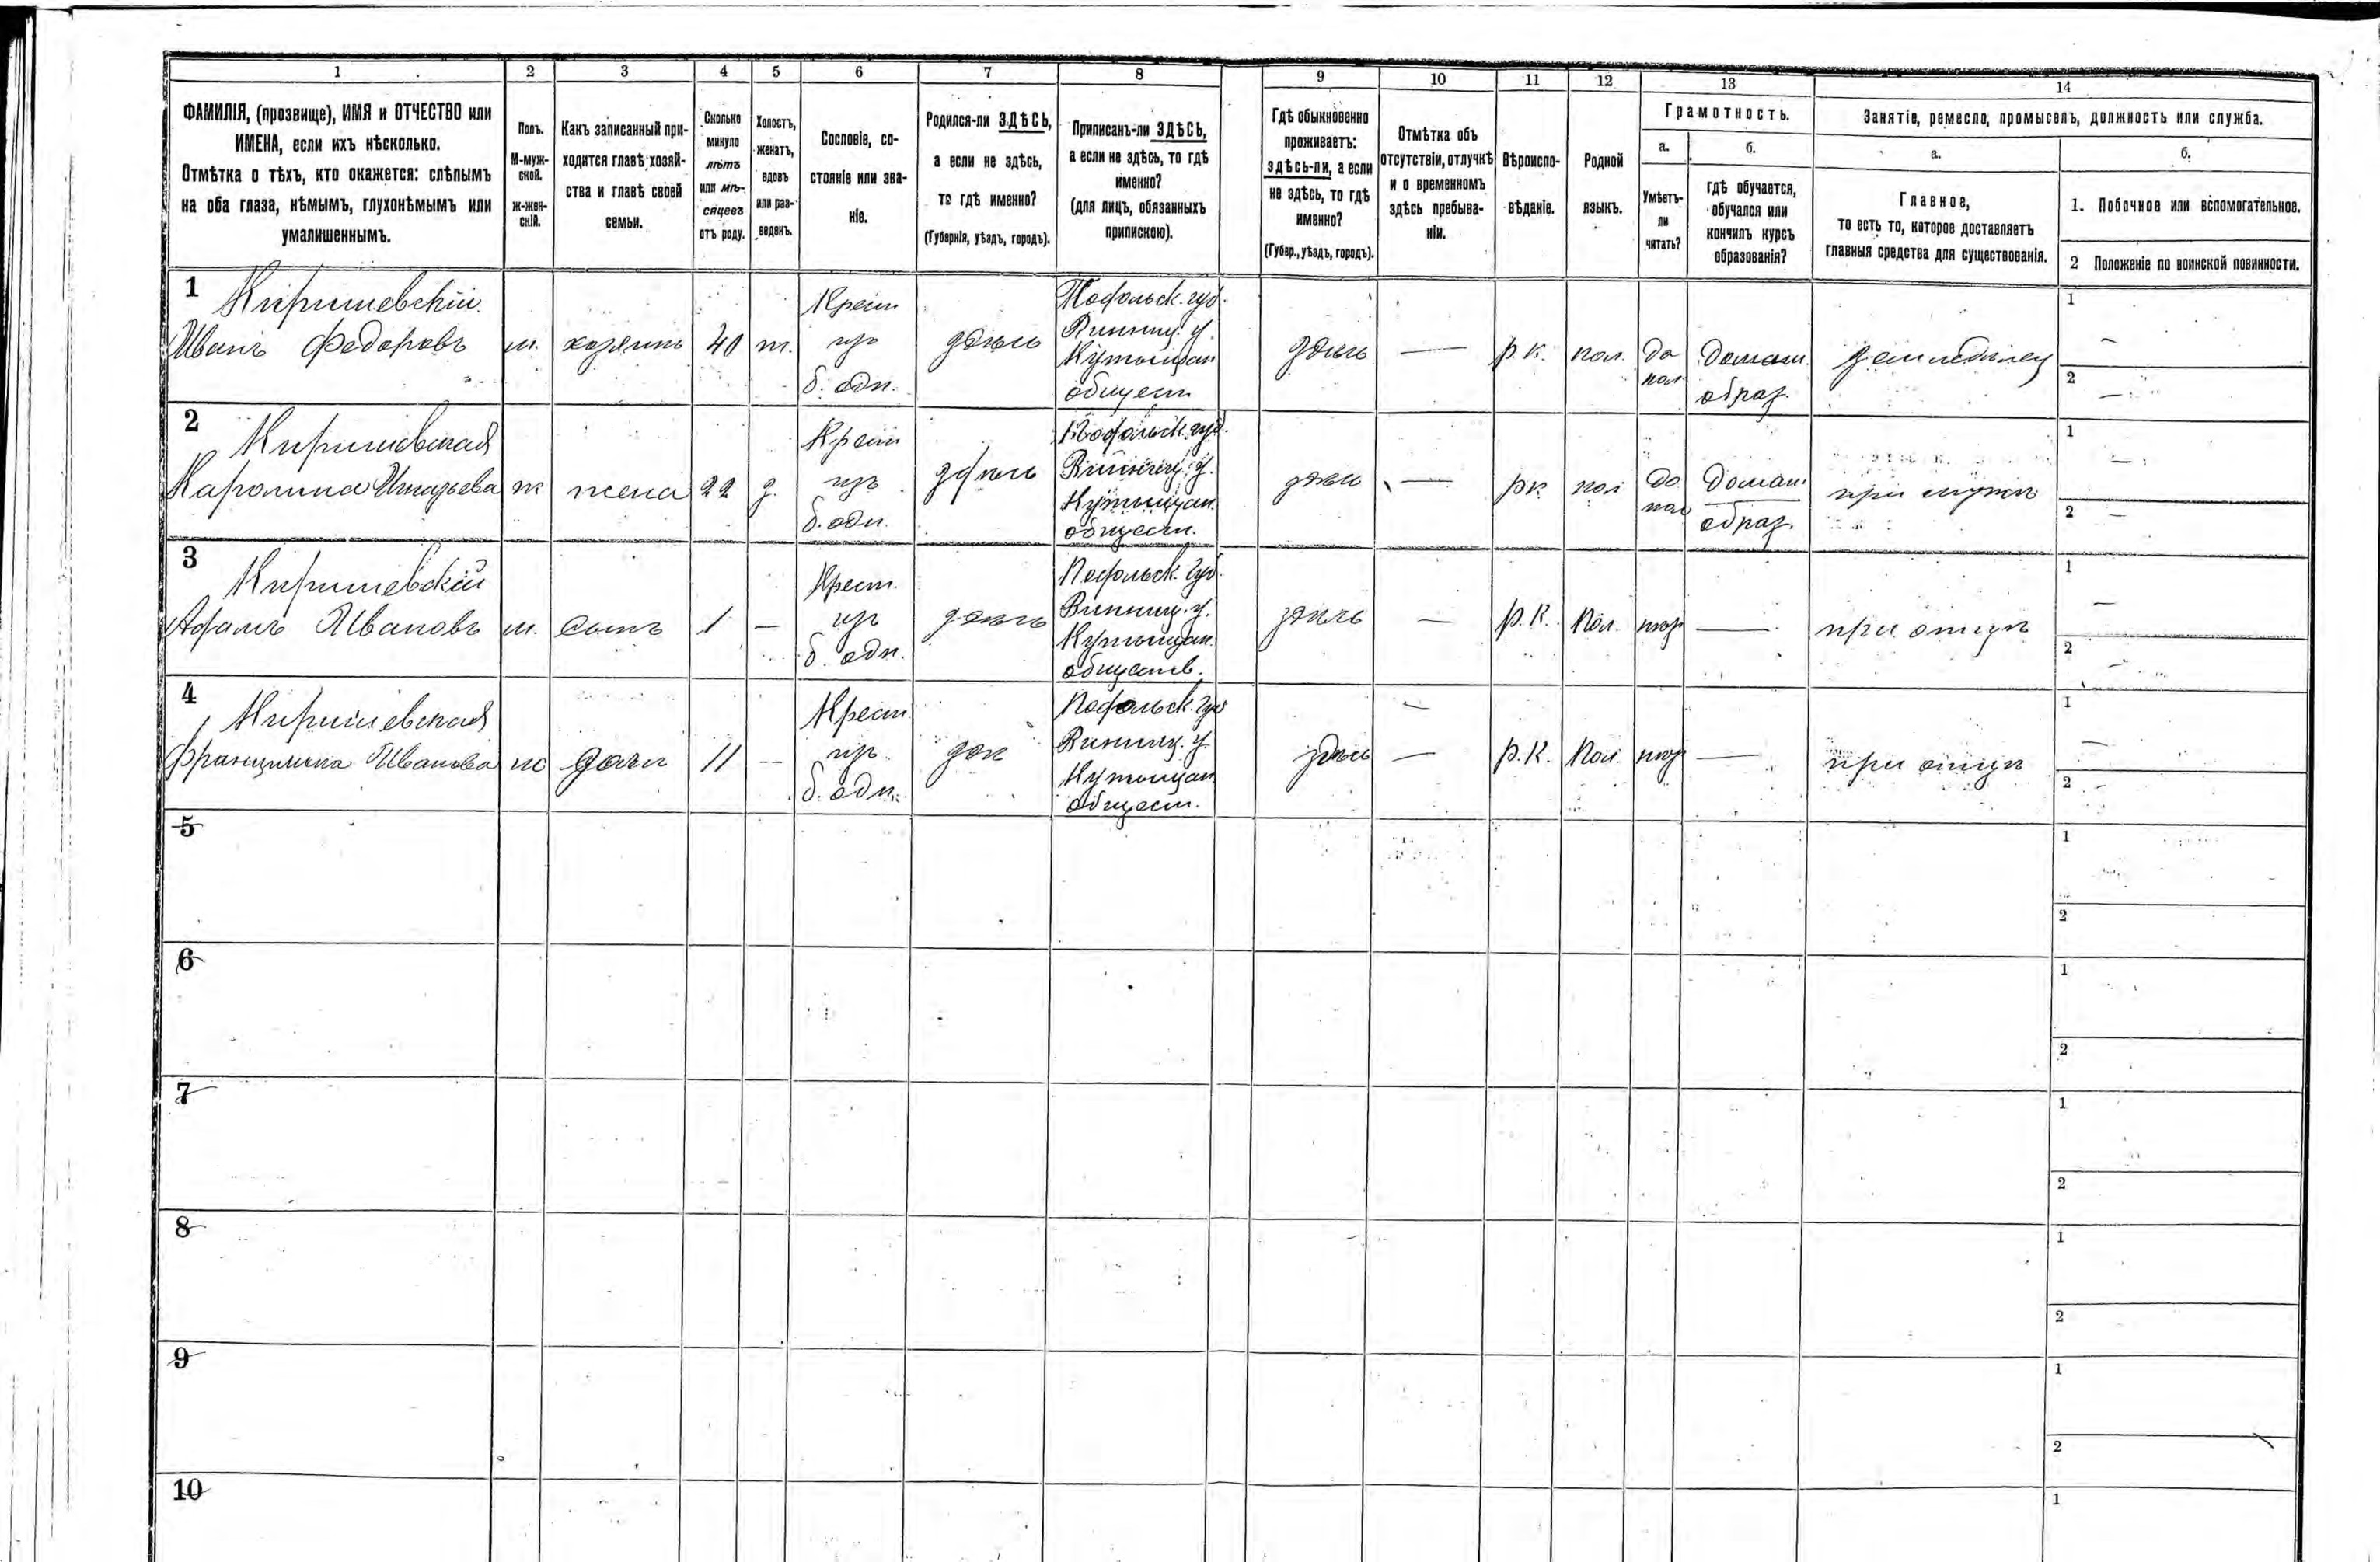 1 2 3 4 5 6 7 8 9 10 11 12 13 14
ФАМИЛІЯ, (прозвище), ИМЯ и ОТЧЕСТВО или
ИМЕНА, если ихъ нѣсколько.
Отмѣтка о тѣхъ, кто окажется: слѣпымъ
на оба глаза, нѣмымъ, глухонѣмымъ или
умалишеннымъ.
Полъ.
М-муж-
ской.
ж-жен-
скій.
Какъ записанный при-
ходится главѣ хозяй-
ства и главѣ своей
семьи.
Сколько
минуло
лѣтъ
или мѣ-
сяцевъ
отъ роду.
Холостъ,
женатъ,
вдовъ
или раз-
веденъ.
Сословіе, со-
стояніе или зва-
ніе.
Родился-ли ЗДѢСЬ,
а если не здѣсь,
то гдѣ именно?
(Губернія, уѣздъ, городъ).
Приписанъ-ли ЗДѢСЬ,
а если не здѣсь, то гдѣ
именно?
(для лицъ, обязанныхъ
припискою).
Гдѣ обыкновенно
проживаетъ:
здѣсь-ли, а если
не здѣсь, то гдѣ
именно?
(Губер., уѣздъ, городъ).
Отмѣтка объ
отсутствіи, отлучкѣ
и о временномъ
здѣсь пребыва-
ніи.
Вѣроиспо-
вѣданіе.
Родной
языкъ.
Грамотность.
а.
Умѣетъ-
ли
читать?
б.
гдѣ обучается,
обучался или
кончилъ курсъ
образованія?
Занятіе, ремесло, промыселъ, должность или служба.
а.
Главное,
то есть то, которое доставляетъ
главныя средства для существованія.
б.
1. Побочное или вспомогательное.
2 Положеніе по воинской повинности.
1
Иванъ Федоровъ
м.
хозяинъ
40
Крест
изъ
б. одн.
здѣсь
Подольск. губ.
Винниц. у.
общест
здѣсь
—
р. к.
пол.
да
пол
Домаш.
образ.
земледѣлец
1
—
2
—
2
Каролина Игнатьева
ж
жена
22
з.
Крест
изъ
б. одн.
здѣсь
Подольск. губ.
Винниц. у.
общест.
здѣсь
—
рк
пол
да
пол
Домаш.
образ.
при мужѣ
1
—
2
—
3
Адамъ Ивановъ
м.
сынъ
1
—
Крест.
изъ
б. одн.
здѣсь
Подольск. губ.
Винниц. у.
обществ.
здѣсь
—
р. к.
Пол.
—
при отцѣ
1
—
2
—
4
Иванова
ж
дочь
11
—
Крест.
изъ
б. одн.
Подольск. губ
Винниц. у
общест.
здѣсь
—
р. к.
Пол.
—
при отцѣ
1
—
2
—
5
1
2
6
1
2
7
1
2
8
1
2
9
1
2
10
1